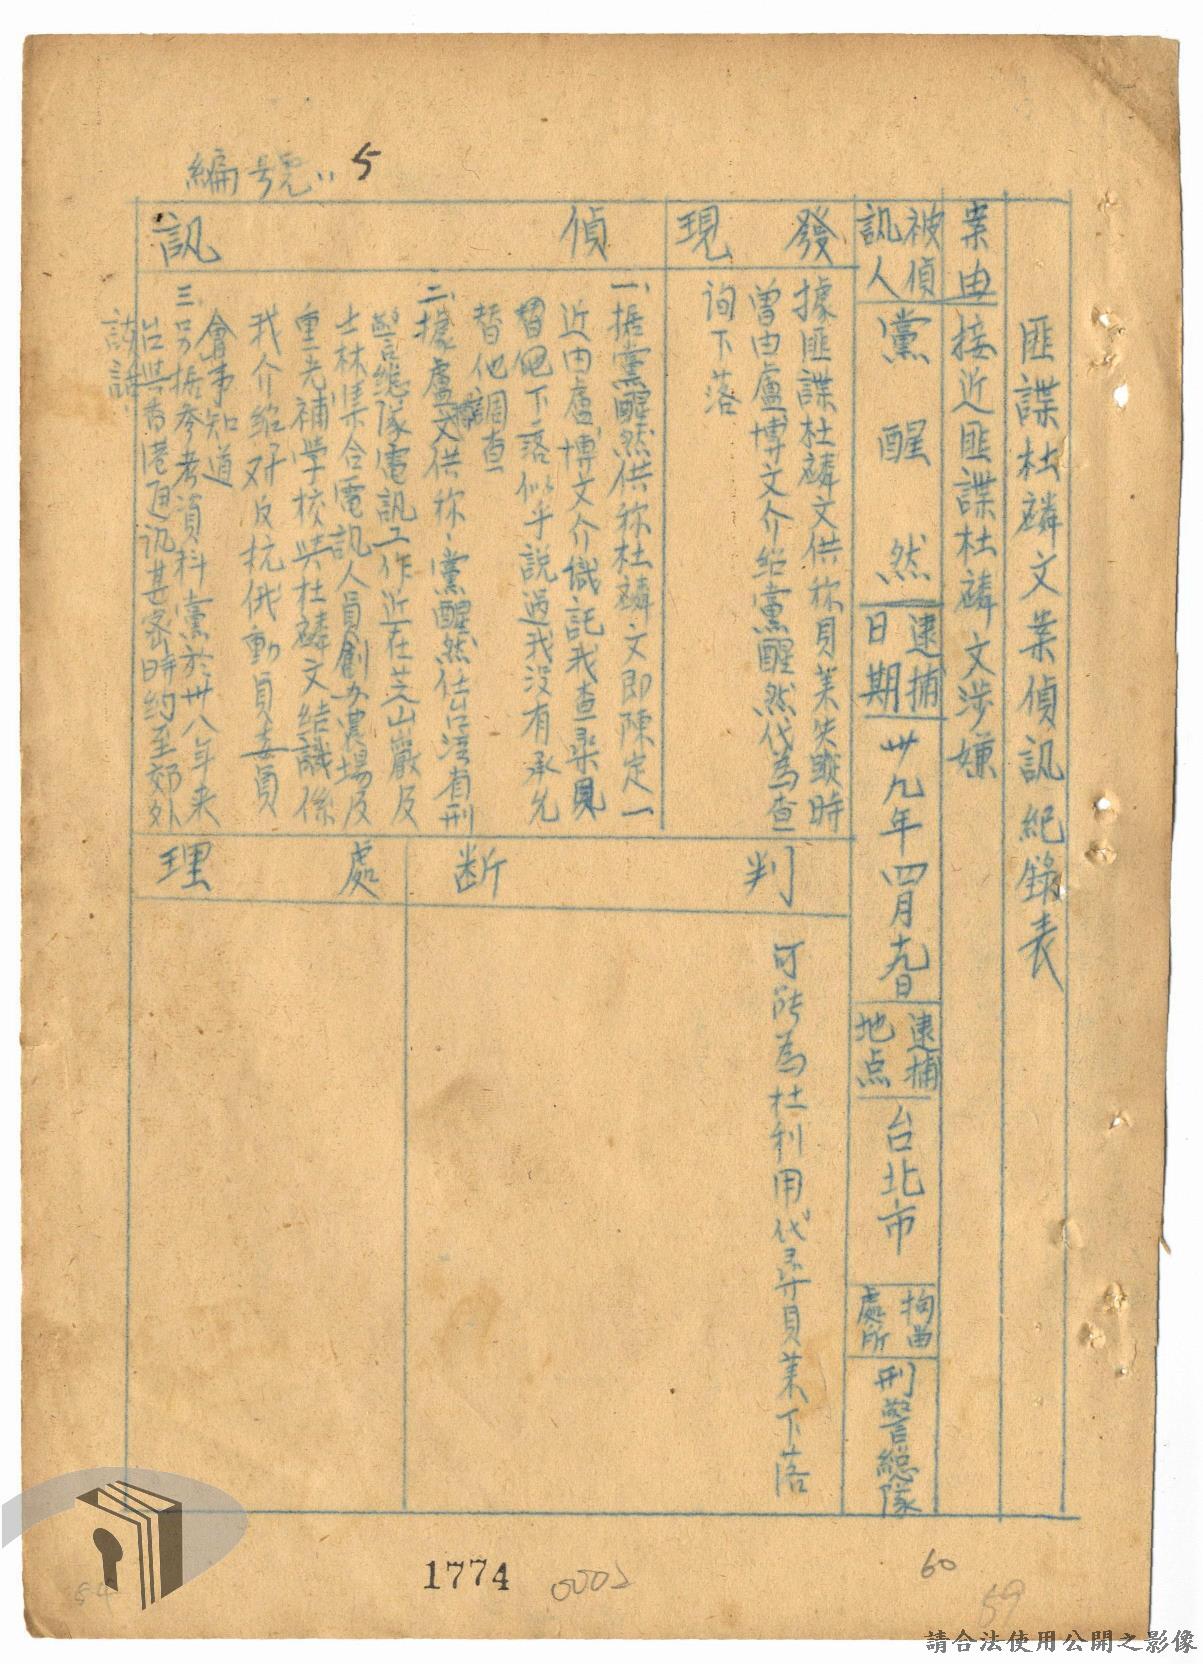 編號：5
匪諜杜麟文業偵訊紀錄表
案由
接近匪諜杜麟文涉嫌
被偵訊人
黨醒然
逮捕日期
卅九年四月十九日
逮捕地点
台北市
拘留處所
刑警總隊
發現
據匪諜杜麟文供称貝某失蹤時
曾由盧博文介紹黨醒然代為查
詢下落
偵訊
一、据黨醒然供称杜麟文即陳定一
近由盧博文介識託我查尋貝
下落似乎說過我没有承允
替他調查
二、據盧文供称、黨醒然仕台湾省刑
警總隊電訊工作近在芝山巖及
士林集合電訊人員創办農場及
重光補学校與杜麟文結識係
我介紹好反抗俄動員委員
會事知道
三、另据参考資料黨於卅八年来
台與香港通訊甚密時約至郊外
談話
判斷
可能為杜利用代尋貝某下落
處理
1774
0002
60
59
54
請合法使用公開之影像